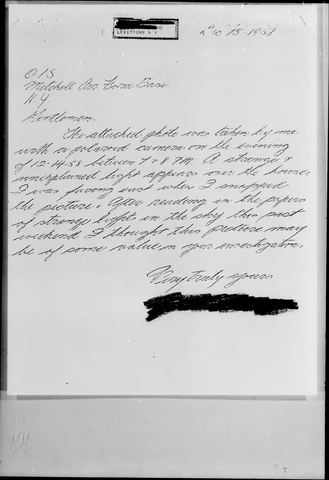 LEVITTOWN N.Y.
15 1958
OIS
Mitchell Air Force Base
N.Y.
Gentlemen.
The attached photo was taken by me
with a polaroid camera on the evening
of 12-14-58 between 7 + 8 PM. A strange +
unexplained light appears over the house.
I was facing east when I snapped
the picture. After reading in the papers
of strange lights in the sky this past
weekend I thought this picture may
be of some value in your investigation.
Very truly yours